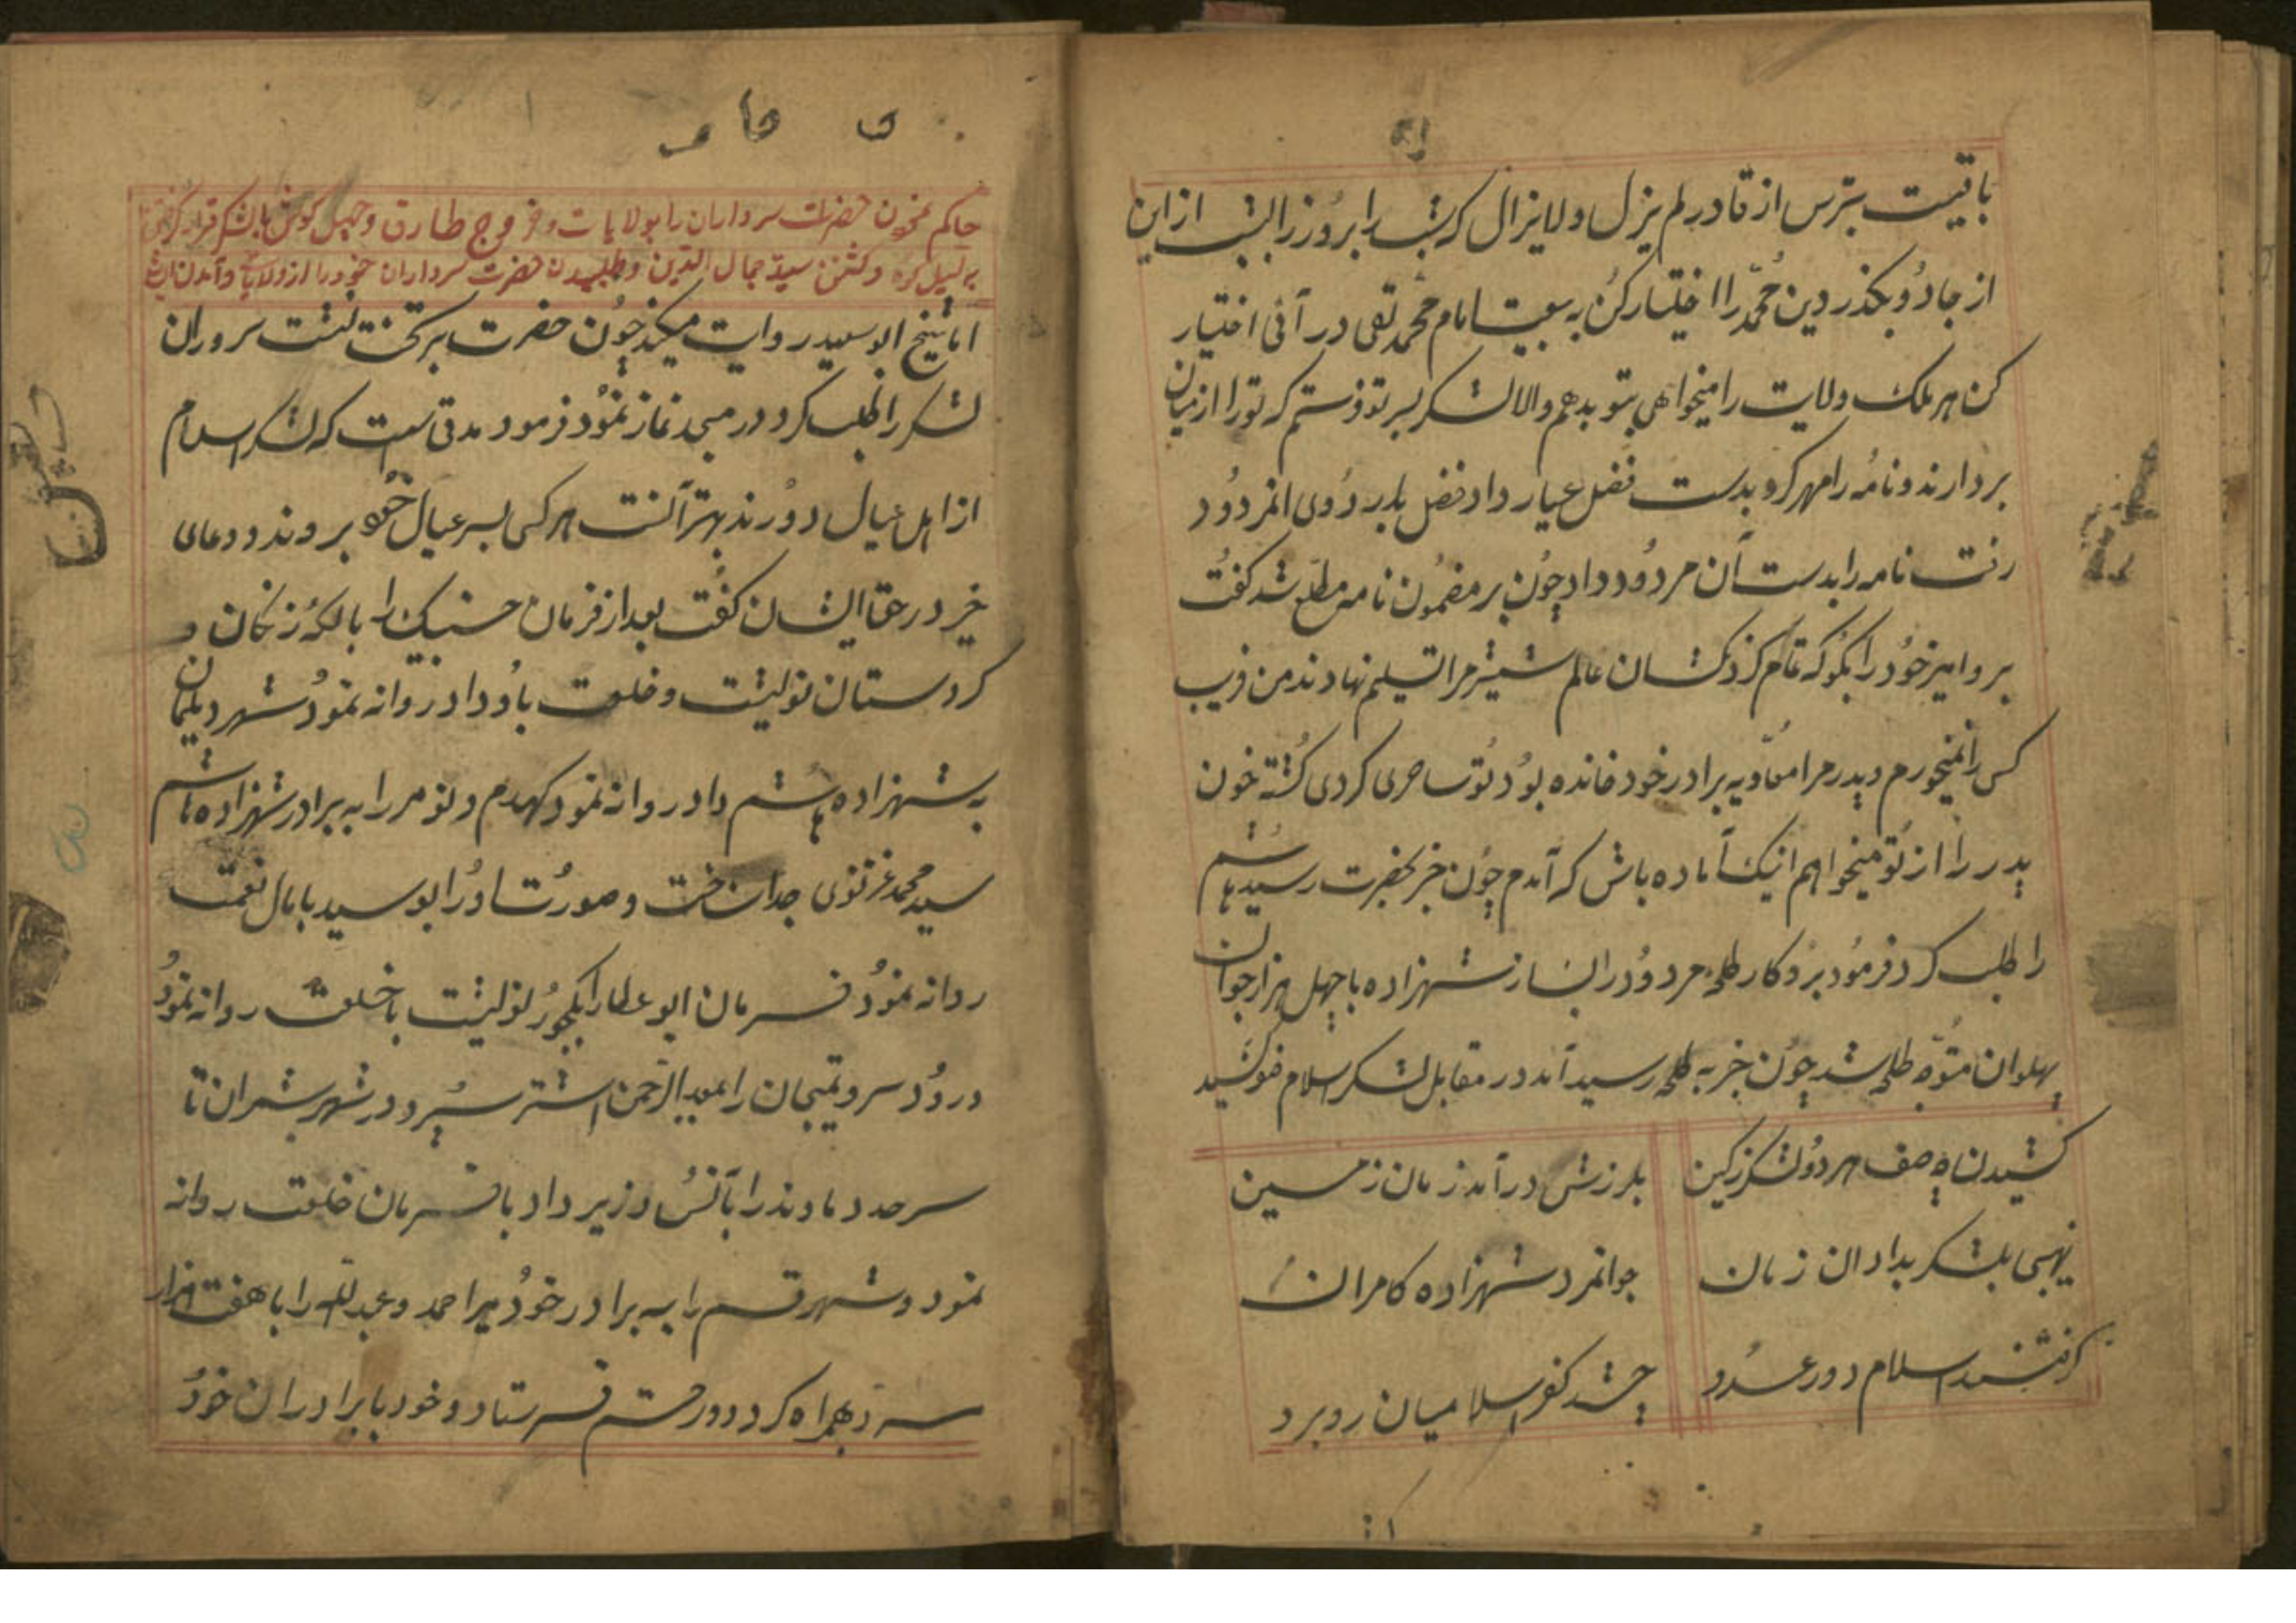 باقیست بترس از قادر لم یزل ولایزال که شب را بروز روز را بشب از این
از جادو بگذر دین محمّد را اختیار کن به بیعت امام محمد تقی در آئی اختیار
کن هر ملک ولایت را میخواهی بتو بدهم والا لشکر بسر تو فرستم که تو را از میان
بردارند و نامه را مهر کرد بدست فضل عیار داد فضل باردوی انمردود
رفت نامه را بدست آن مردود داد چون بر مضمون نامه مطلع شد کفت
برو امیر خود را بکو که تمام کردنکشان عالم شمشیر مرا تسلیم نهادند من فریب
کس را نمیخورم و پدر مرا معاویه برادر خود خوانده بود تو ساحری کردی کشته خون
پدر را از تو میخواهم اینک آماده باش که آمدم چون خبر بحضرت رسید هاشم
را طلب کرد فرمود برو کار طلحه مردود را بساز شهزاده با چهل هزار جوان
پهلوان متوجّه طلحه شد چون خبر به طلحه رسید آمد در مقابل لشکر اسلام صف کشید
کشیدن صف هر دو لشکر ز کین
بلرزش درآمد زمان زمین
نهیبی بلشکر بداد ان زمان
جوانمرد شهزاده کامران
کرفتند اسلام دور عدو
چشد کفر اسلامیان روبرد
حاکم نمودن حضرت سرداران را بولایات و خروج طارق و چهل کوش بالشکر قرار کرفتن
و کشتن سید جمال الدین و طلبیدن حضرت سرداران خود را از ولایات و آمدن
اما شیخ ابو سعید روایت میکند چون حضرت بر تخت نشست سروران
لشکر را طلب کرد در مسجد نماز نمود فرمود مدتی است که لشکر اسلام
از اهل عیال دورند بهتر آنست هر کس بسر عیال خود بروند و دعای
خیر در حق ایشان کفت بعد از فرمان حسنبیک را بالکه زنکان و
کردستان نوشت و خلعت باو داد روانه نمود شهر دیلمان
به شهزاده هاشم داد روانه نمود کهدم و نومر را به برادر شهزاده هاشم
سید محمد غزنوی جدا ساخت و صورت او را ابو سعید با مال نعمت
روانه نمود فرمان ابو عطا را بکجور نوشت با خلعت روانه نمود
درود سر و تمیجان را بعبدالرحمن اشتر سپرد و در شهر شمران تا
سرحد دماوند را بآنس وزیر داد با فرمان خلعت روانه
نمود و شهر قم را به برادر خود میر احمد و عبدالله را با هفت هزار
سر د بهمراه کرد و در قم فرستاد و خود با برادران خود